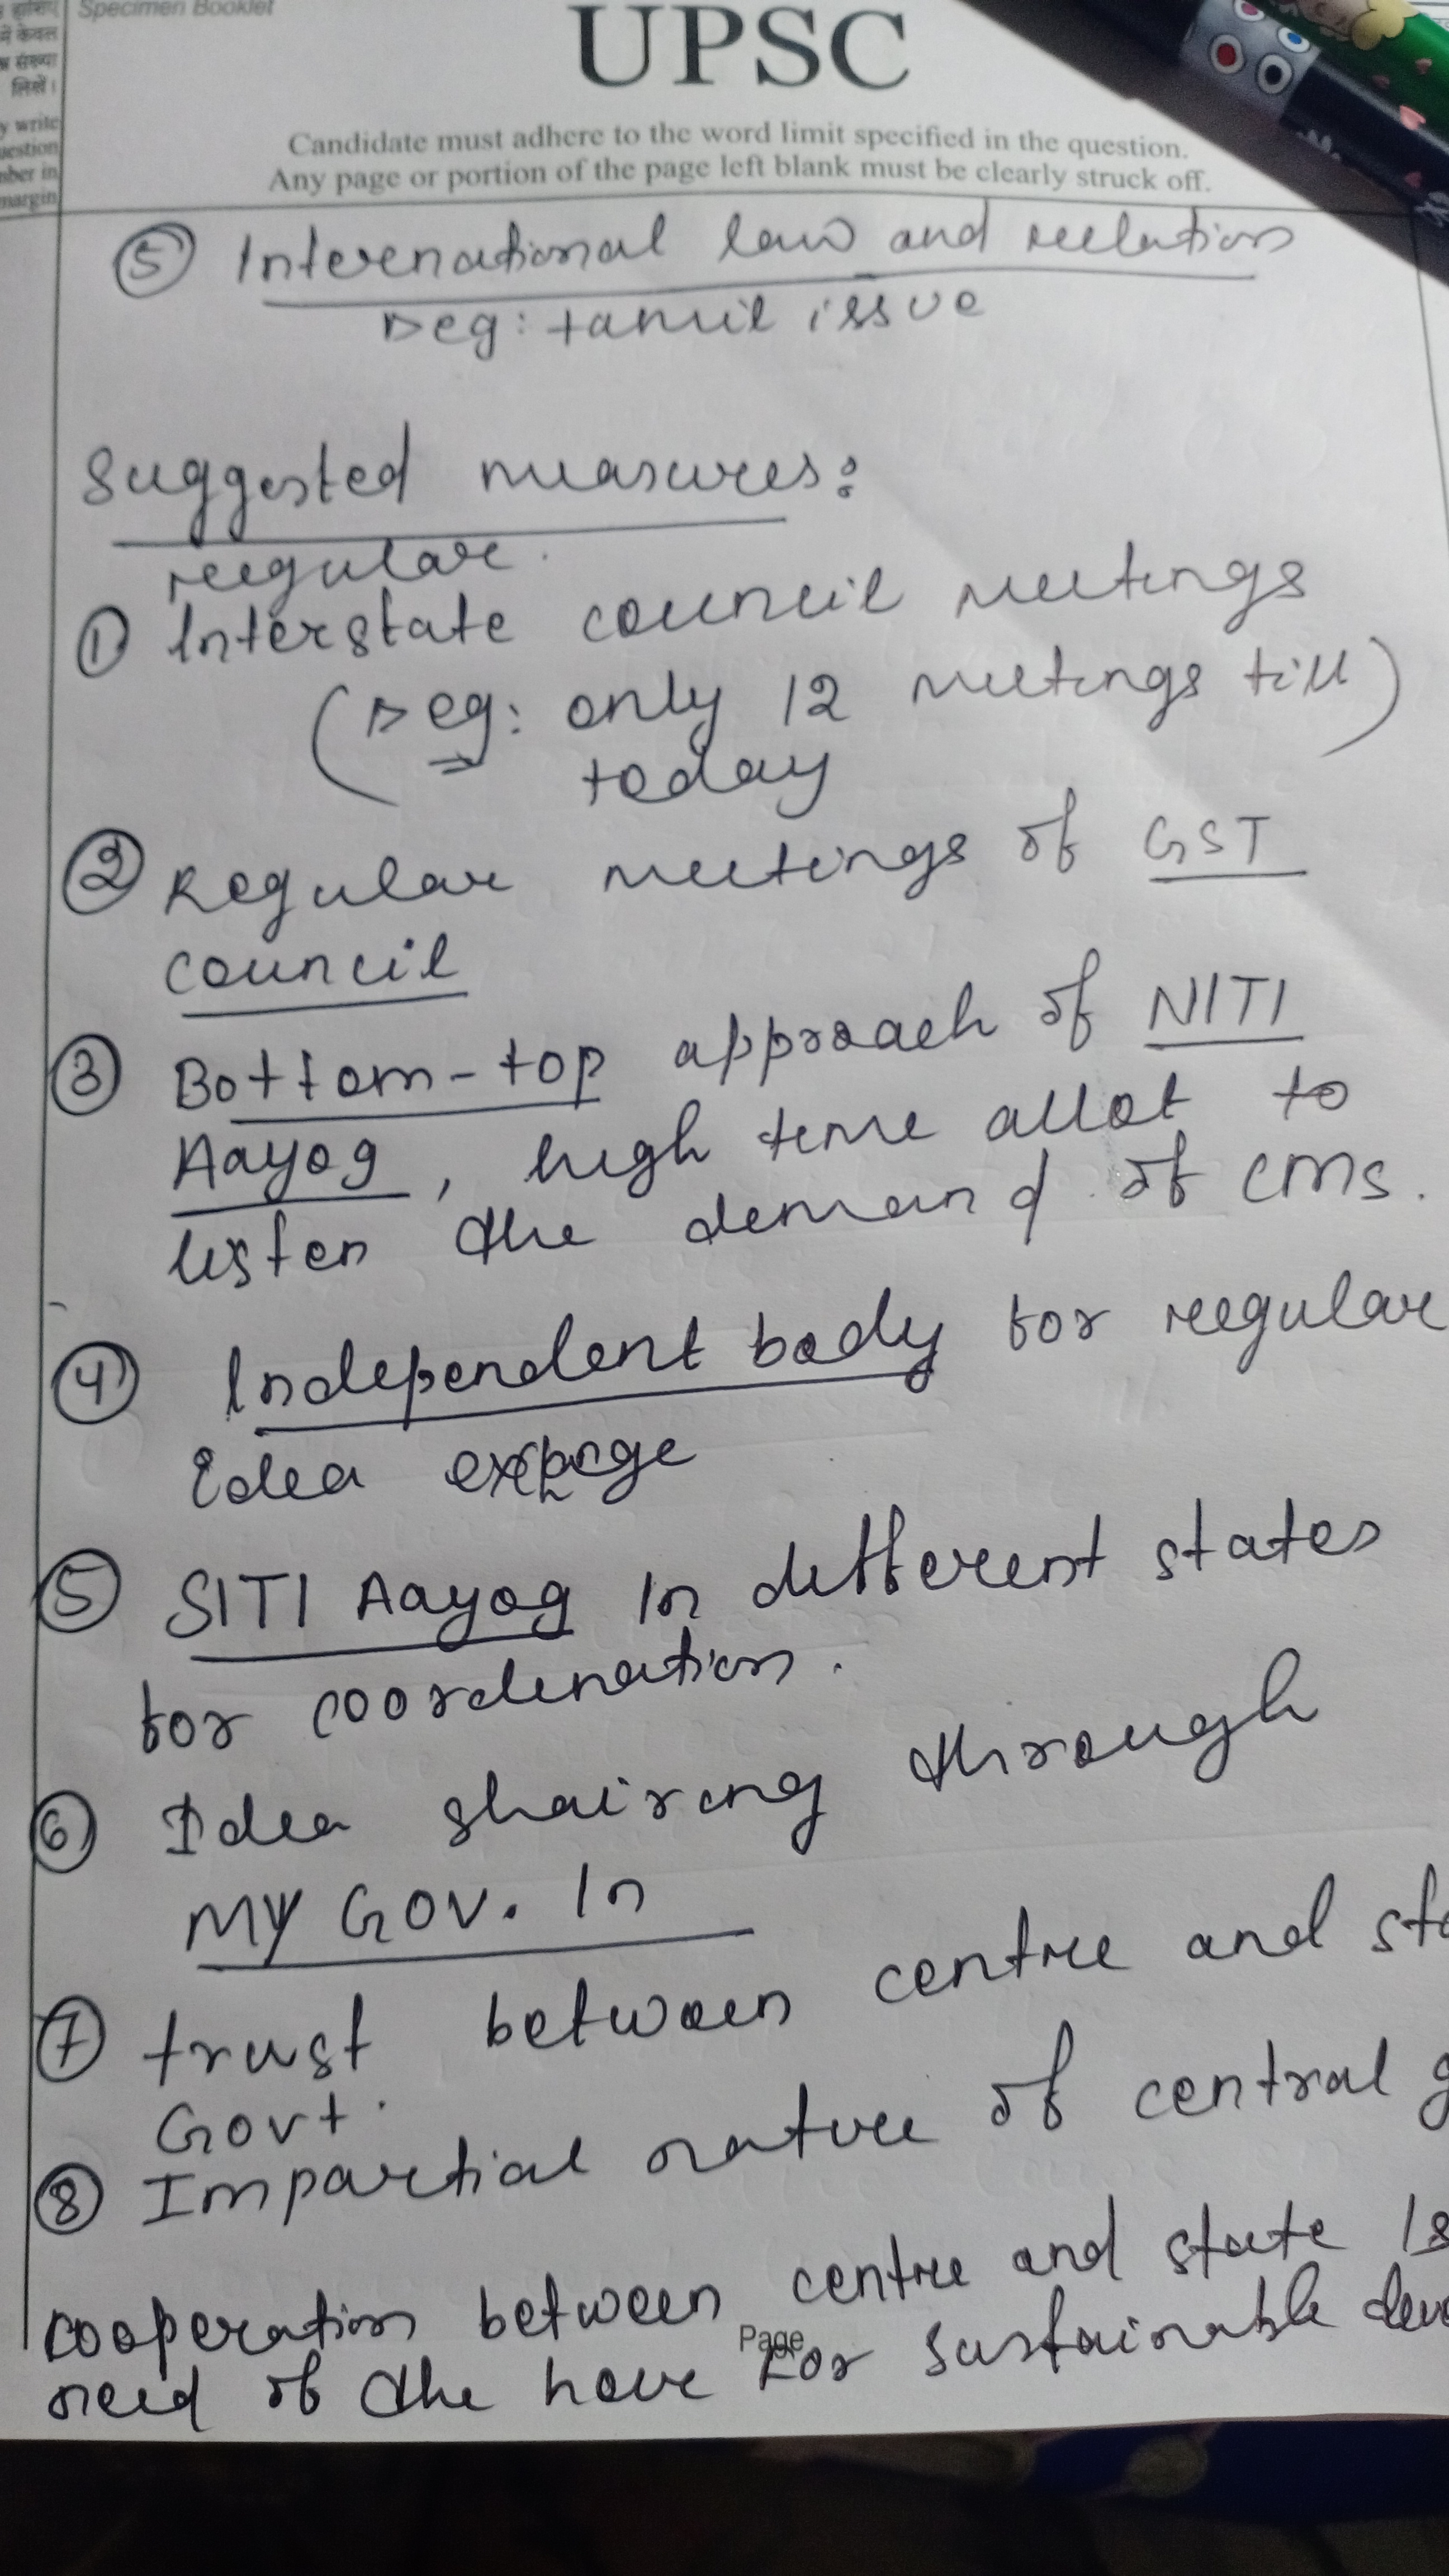 Specimen Booklet
में केवल
संख्या
लिखें।
write
UPSC
Candidate must adhere to the word limit specified in the question.
Any page or portion of the page left blank must be clearly struck off.
margin
⑤ International law and relation
eg: tamil issue
Suggested measures:
regular
① Interstate council meetings
(eg: only 12 meetings till)
today
② Regular meetings of GST
council
③ Bottom-top approach of NITI
Aayog, high time allot to
listen the demand of CMs.
④ Independent body for regular
Idea
⑤ SITI Aayog in different states
for coordination.
⑥ Idea shairing through
MY GOV. In
⑦ trust between centre and
Govt.
⑧ Impartial nature of central
cooperation between centre and state is
Page
need of the hove For sustainable